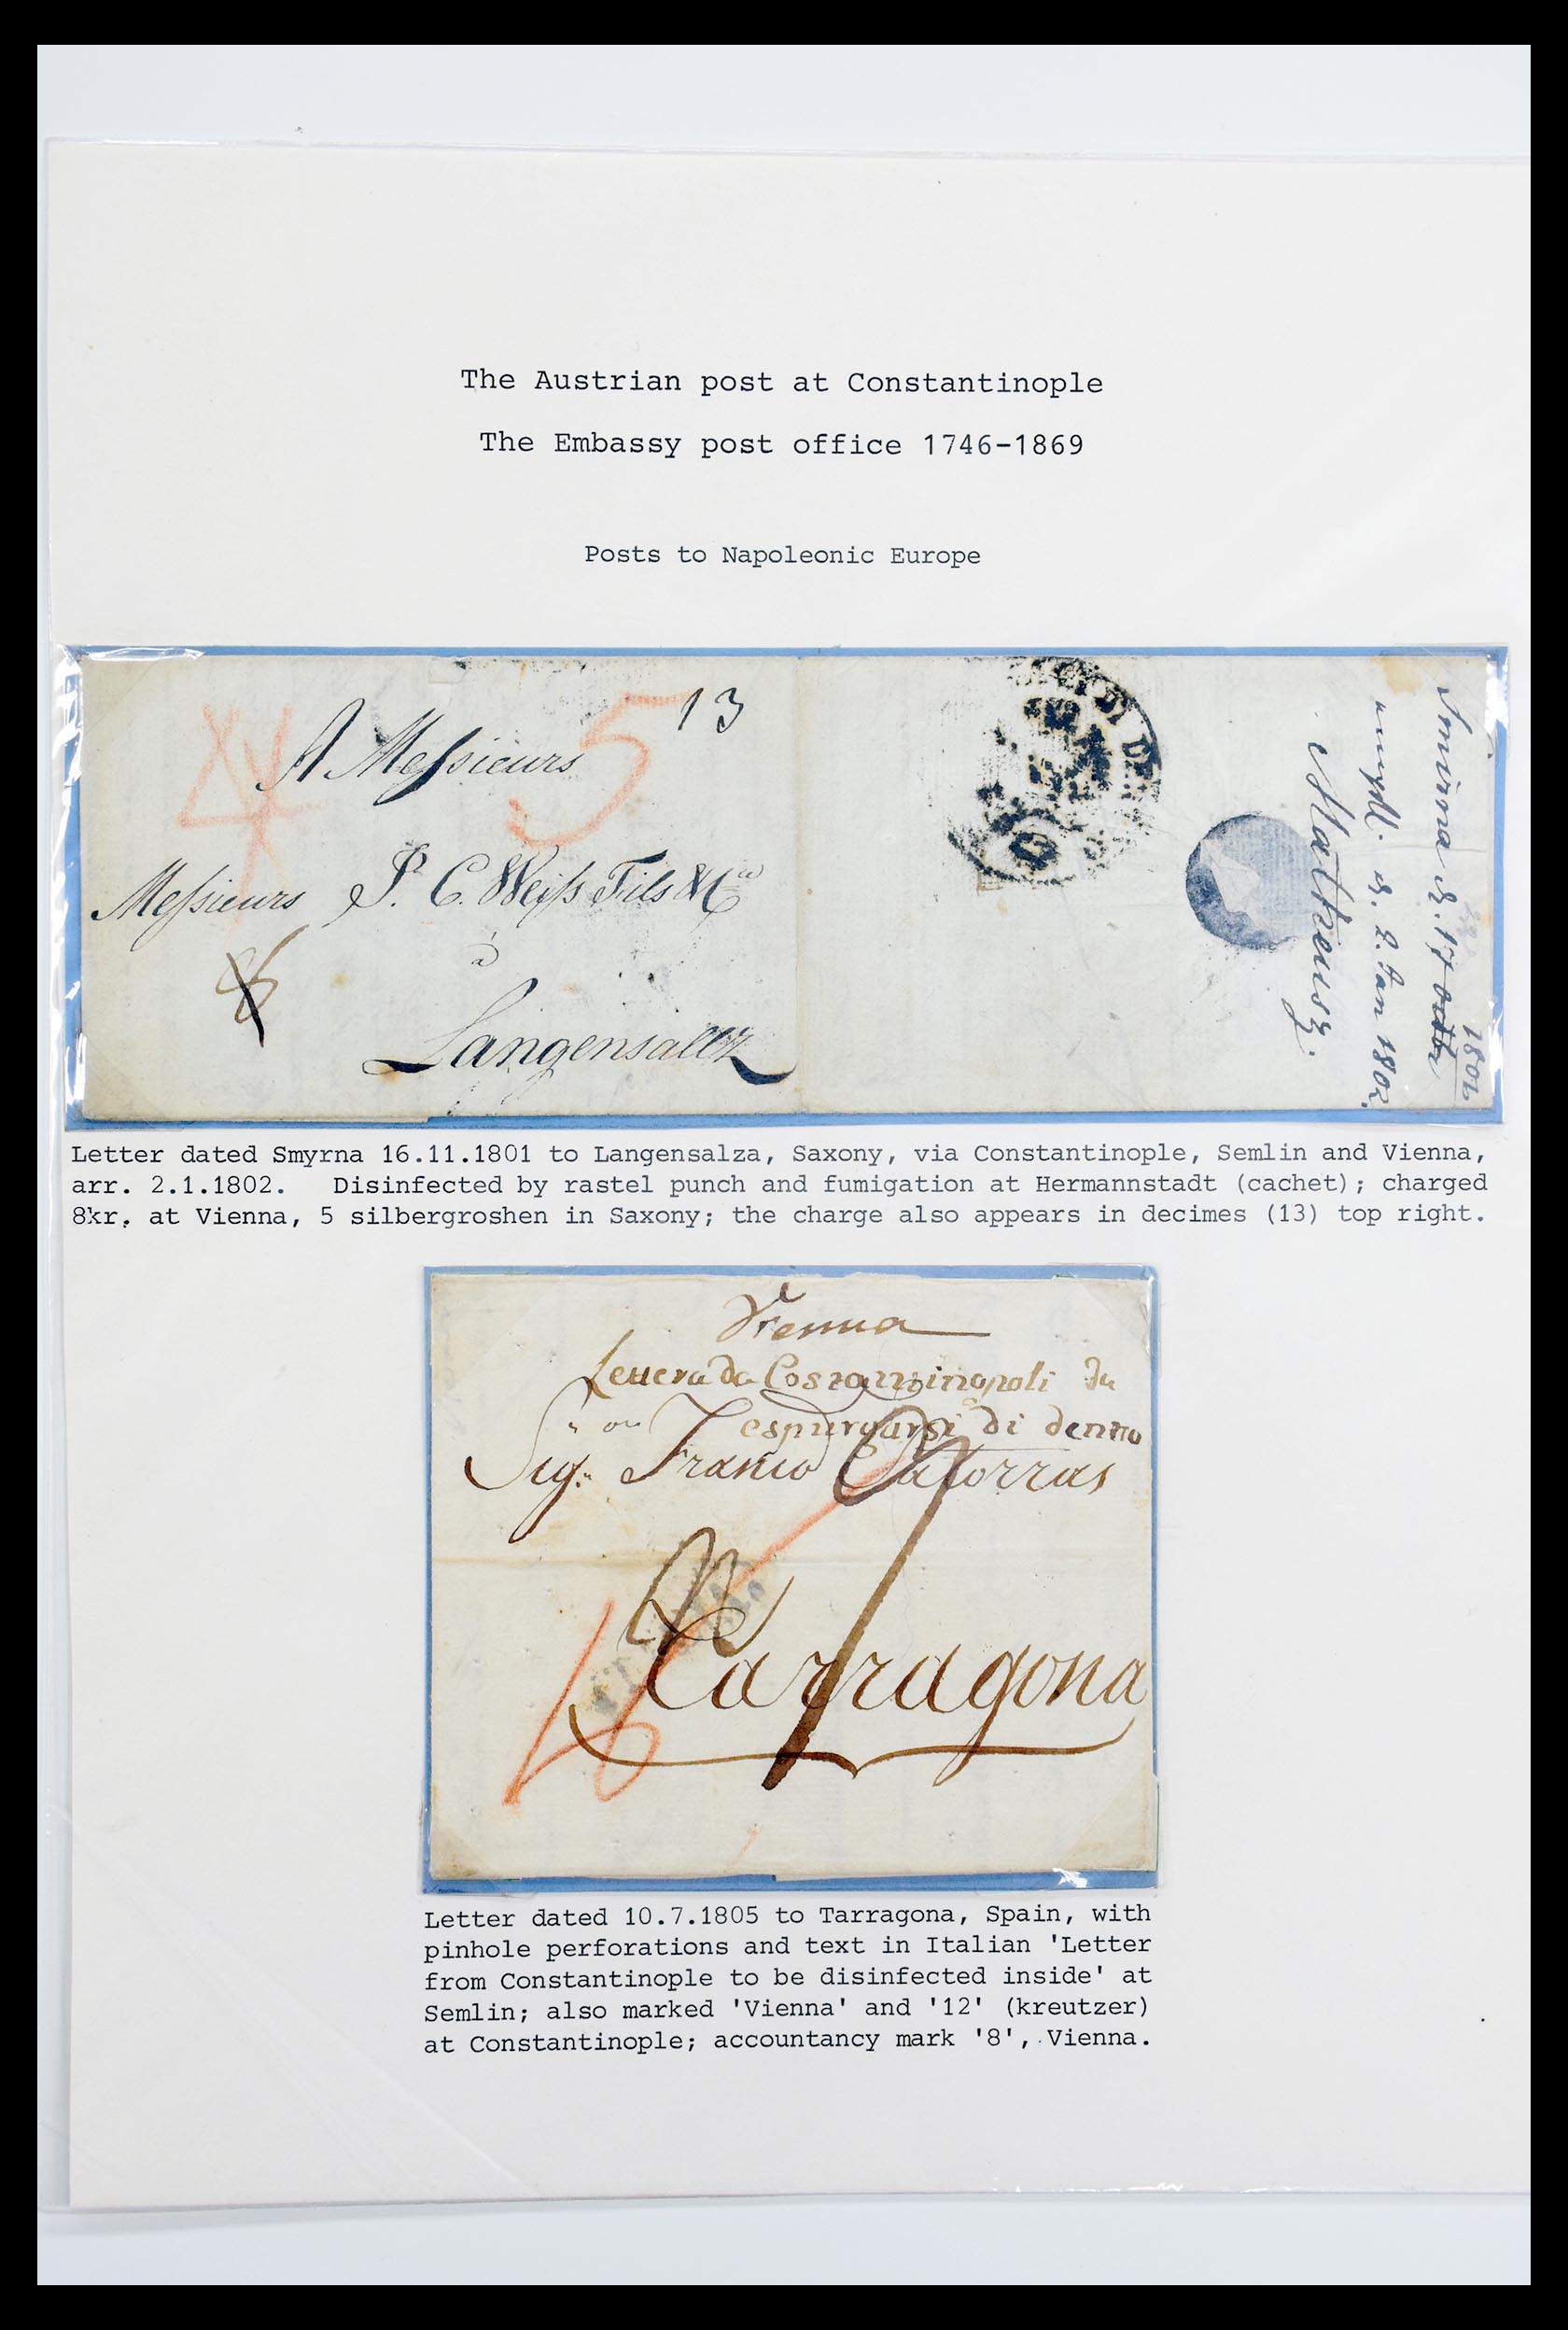 The Austrian post at Constantinople
The Embassy post office 1746-1869
Posts to Napoleonic Europe
13
5
A Messieurs
Messieurs P. C. Weiss Fils & Co
à
Langensalza
Smirna d. 17
1801
d. 2. Jan 1802.
Letter dated Smyrna 16.11.1801 to Langensalza, Saxony, via Constantinople, Semlin and Vienna,
arr. 2.1.1802. Disinfected by rastel punch and fumigation at Hermannstadt (cachet); charged
8kr. at Vienna, 5 silbergroshen in Saxony; the charge also appears in decimes (13) top right.
Vienna
Lettera da Costantinopoli da
espurgarsi di dentro
Sig.
Tarragona
Letter dated 10.7.1805 to Tarragona, Spain, with
pinhole perforations and text in Italian 'Letter
from Constantinople to be disinfected inside' at
Semlin; also marked 'Vienna' and '12' (kreutzer)
at Constantinople; accountancy mark '8', Vienna.